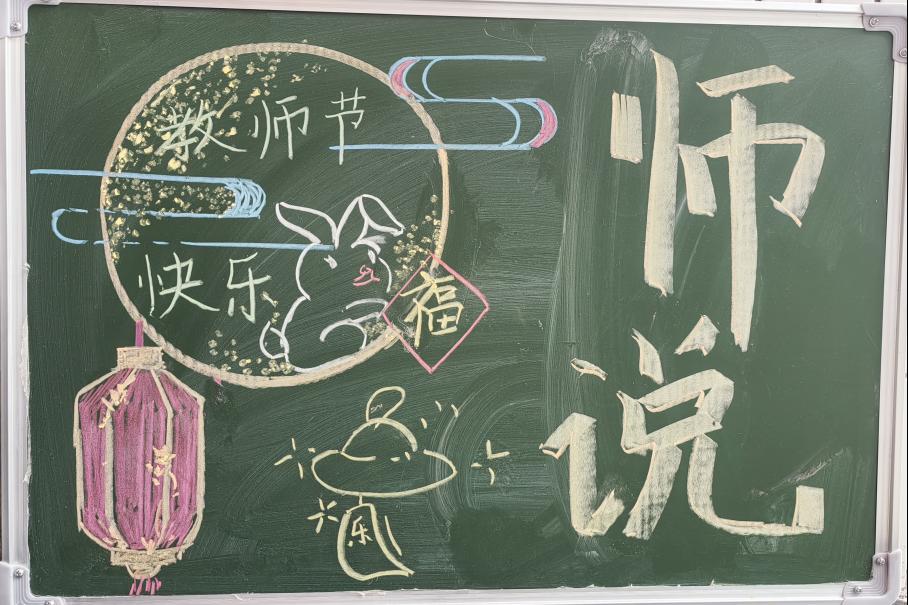 教师节
快乐
福
乐
师说